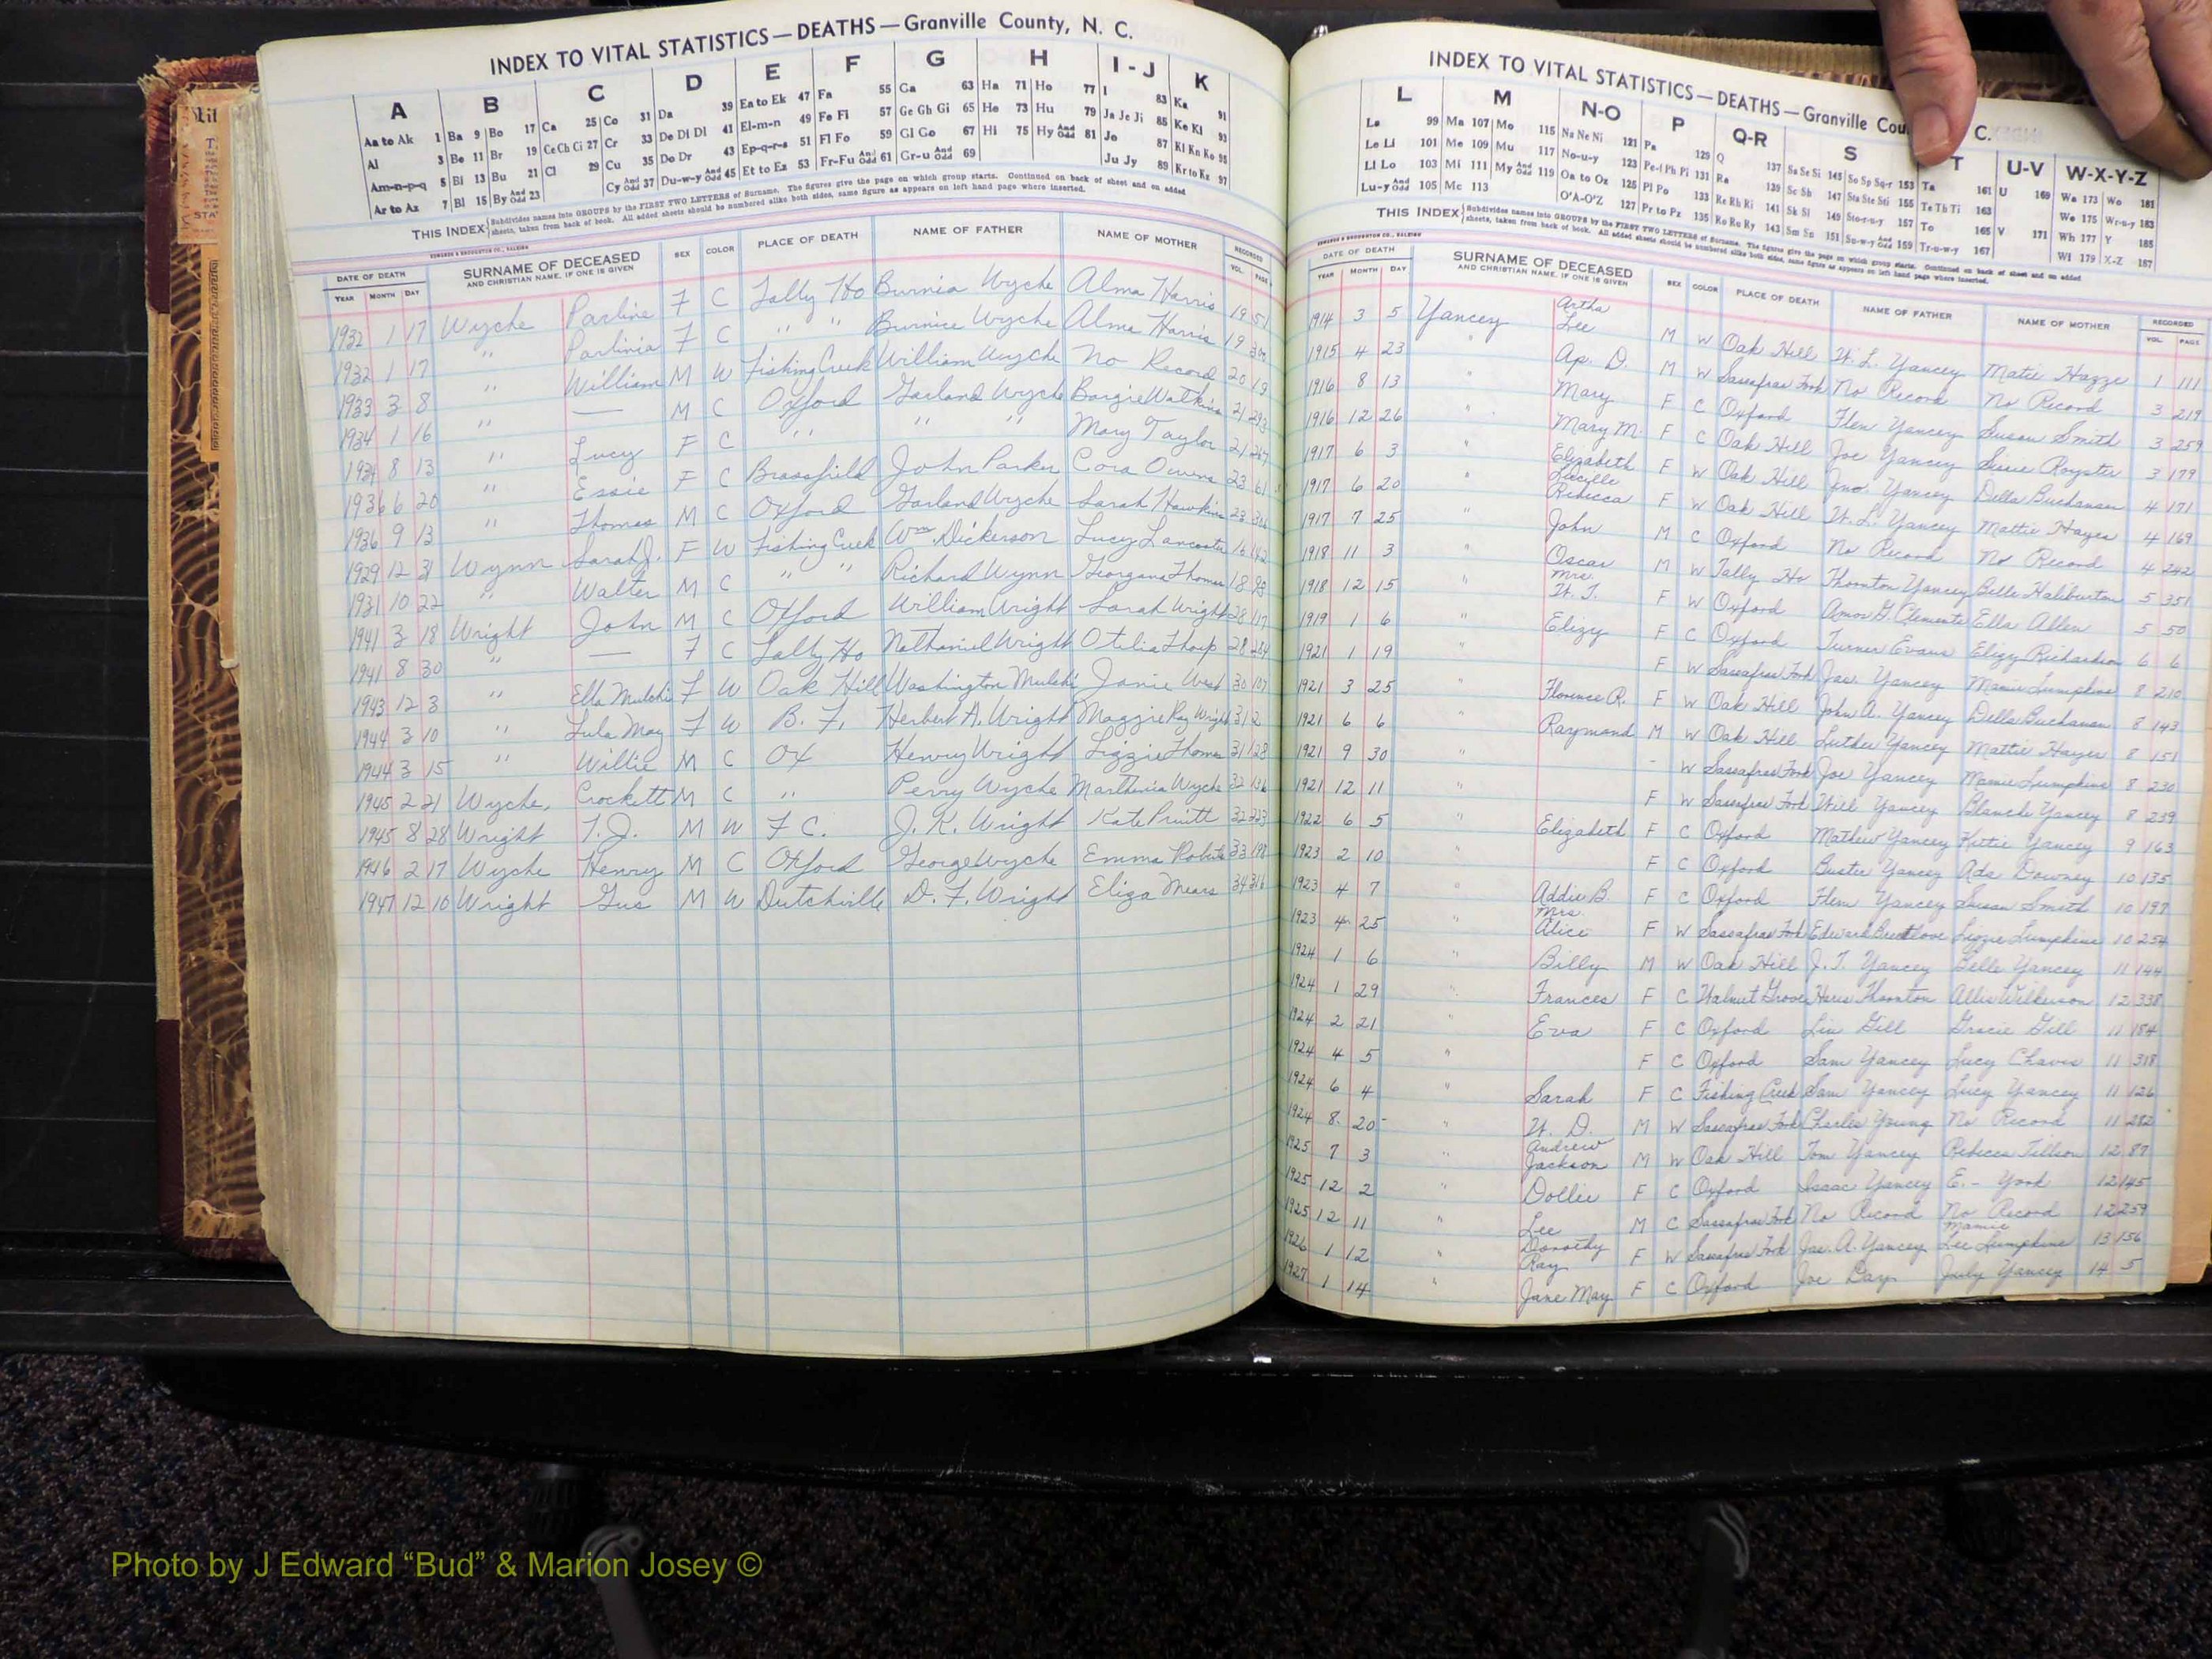 INDEX TO VITAL STATISTICS — DEATHS — Granville County, N. C.
A B C D E F G H I-J K
Aa to Ak 1 Ba 9 Bo 17 Ca 25 Co 31 Da 39 Ea to Ek 47 Fa 55 Ga 63 Ha 71 Ho 77 I 83 Ka 91
Al 3 Be 11 Br 19 Ce Ch Ci 27 Cr 33 De Di Dl 41 El-m-n 49 Fe Fi 57 Ge Gh Gi 65 He 73 Hu 79 Ja Je Ji 85 Ke Kl 93
Am-n-p-q 5 Bi 13 Bu 21 Cl 29 Cu 35 Do Dr 43 Ep-q-r-s 51 Fl Fo 59 Gl Go 67 Hi 75 Hy And Odd 81 Jo 87 Kl Kn Ko 95
Ar to Az 7 Bl 15 By And Odd 23 Cy And Odd 37 Du-w-y And Odd 45 Et to Ez 53 Fr-Fu And Odd 61 Gr-u And Odd 69 Ju Jy 89 Kr to Kz 97
THIS INDEX Subdivides names into GROUPS by the FIRST TWO LETTERS of Surname. The figures give the page on which group starts. Continued on back of sheet and on added
sheets, taken from back of book. All added sheets should be numbered alike both sides, same figure as appears on left hand page where inserted.
EDWARDS & BROUGHTON CO., RALEIGH
DATE OF DEATH SURNAME OF DECEASED SEX COLOR PLACE OF DEATH NAME OF FATHER NAME OF MOTHER RECORDED
YEAR MONTH DAY AND CHRISTIAN NAME, IF ONE IS GIVEN VOL. PAGE
1932 1 17 Wyche Parline F C Tally Ho Burnia Wyche Alma Harris 19 51
1932 1 17 " Parlinia F C " " Burnice Wyche Alma Harris 19 300
1933 3 8 " William M W Fishing Creek William Wyche No Record 20 19
1934 1 16 " — M C Oxford Garland Wyche Bargie Watkins 21 293
1934 8 13 " Lucy F C " " " Mary Taylor 21 267
1936 6 20 " Essie F C Brassfield John Parker Cora Owens 23 61
1936 9 13 " Thomas M C Oxford Garland Wyche Sarah Hawkins 23
1929 12 31 Wynn Sarah J. F W Fishing Creek Wm. Dickerson Lucy Lancaster 16 142
1931 10 22 " Walter M C " " Richard Wynn Georgana Thomas 18 93
1941 3 18 Wright John M C Oxford William Wright Sarah Wright 28 117
1941 8 30 " — F C Tally Ho Nathaniel Wright Otelia Thorp 28 284
1943 12 3 " Ella Mulchi F W Oak Hill Washington Mulchi Janie West 30 107
1944 3 10 " Lula May F W B. F. Herbert A. Wright Maggie Ray Wright 31 2
1944 3 15 " Willie M C Ox Henry Wright Lizzie Thomas 31 128
1945 2 21 Wyche, Crockett M C " Perry Wyche Marthenia Wyche 32 136
1945 8 28 Wright T. J. M W F C. J. K. Wright Kate Pruitt 32 323
1946 2 17 Wyche Henry M C Oxford George Wyche Emma Roberts 33 198
1947 12 10 Wright Gus M W Dutchville D. F. Wright Eliza Mears 34 316
INDEX TO VITAL STATISTICS — DEATHS — Granville Cou C.
L M N-O P Q-R S T U-V W-X-Y-Z
La 99 Ma 107 Mo 115 Na Ne Ni 121 Pa 129 Q 137 Sa Se Si 145 So Sp Sq-r 153 Ta 161 U 169 Wa 173 Wo 181
Le Li 101 Me 109 Mu 117 No-u-y 123 Pe-f Ph Pi 131 Ra 139 Sc Sh 147 Sta Ste Sti 155 Te Th Ti 163 We 175 Wr-u-y 183
Ll Lo 103 Mi 111 My And Odd 119 Oa to Oz 125 Pl Po 133 Re Rh Ri 141 Sk Sl 149 Sto-r-u-y 157 To 165 V 171 Wh 177 Y 185
Lu-y And Odd 105 Mc 113 O'A-O'Z 127 Pr to Pz 135 Ro Ru Ry 143 Sm Sn 151 Su-w-y And Odd 159 Tr-u-w-y 167 Wi 179 X-Z 187
THIS INDEX Subdivides names into GROUPS by the FIRST TWO LETTERS of Surname. The figures give the page on which group starts. Continued on back of sheet and on added
sheets, taken from back of book. All added sheets should be numbered alike both sides, same figure as appears on left hand page where inserted.
EDWARDS & BROUGHTON CO., RALEIGH
DATE OF DEATH SURNAME OF DECEASED SEX COLOR PLACE OF DEATH NAME OF FATHER NAME OF MOTHER RECORDED
YEAR MONTH DAY AND CHRISTIAN NAME, IF ONE IS GIVEN VOL. PAGE
1914 3 5 Yancey Artha Lee M W Oak Hill W. L. Yancey Matie Hazze 1 111
1915 4 23 " Ap. D. M W Sassafras Fork No Record No Record 3 219
1916 8 13 " Mary F C Oxford Flem Yancey Susan Smith 3 259
1916 12 26 " Mary M. F C Oak Hill Joe Yancey Sissie Royster 3 179
1917 6 3 " Elizabeth F W Oak Hill Jno. Yancey Della Buchanan 4 171
1917 6 20 " Lucille Rebecca F W Oak Hill W. L. Yancey Mattie Hayes 4 169
1917 7 25 " John M C Oxford No Record No Record 4 242
1918 11 3 " Oscar M W Tally Ho Thornton Yancey Belle Haliburton 5 351
1918 12 15 " Mrs. W. T. F W Oxford Amos G. Clements Ella Allen 5 50
1919 1 6 " Elizy F C Oxford Turner Evans Elizy Richardson 6 6
1921 1 19 " F W Sassafras Fork Jas. Yancey Mamie Lumpkins 8 210
1921 3 25 " Florence R. F W Oak Hill John A. Yancey Della Buchanan 8 143
1921 6 6 " Raymond M W Oak Hill Luther Yancey Mattie Hayes 8 151
1921 9 30 " - W Sassafras Fork Joe Yancey Mamie Lumpkins 8 230
1921 12 11 " F W Sassafras Fork Will Yancey Blanche Yancey 8 239
1922 6 5 " Elizabeth F C Oxford Mathew Yancey Kittie Yancey 9 163
1923 2 10 " F C Oxford Buster Yancey Ada Downey 10 135
1923 4 7 " Addie B. F C Oxford Flem Yancey Susan Smith 10 197
1923 4 25 " Mrs. Alice F W Sassafras Fork Edward Breedlove Lizzie Lumpkins 10 254
1924 1 6 " Billy M W Oak Hill J. T. Yancey Belle Yancey 11 144
1924 1 29 " Frances F C Walnut Grove Hares Thornton Allis Wilkerson 12 338
1924 2 21 " Eva F C Oxford Lin Gill Gracie Gill 11 154
1924 4 5 " F C Oxford Sam Yancey Lucy Chavis 11 318
1924 6 4 " Sarah F C Fishing Creek Sam Yancey Lucy Yancey 11 126
1924 8 20 " W. D. M W Sassafras Fork Charles Young No Record 11 282
1925 7 3 " Andrew Jackson M W Oak Hill Tom Yancey Rebecca Tillson 12 87
1925 12 2 " Dollie F C Oxford Isaac Yancey E. - York 12 145
1925 12 11 " Lee M C Sassafras Fork No Record No Record 12 259
1926 1 12 " Dorothy Ray F W Sassafras Fork Jas. A. Yancey Mamie Lee Lumpkins 13 156
1927 1 14 " Jane May F C Oxford Joe Day July Yancey 14 5
Photo by J Edward “Bud” & Marion Josey ©